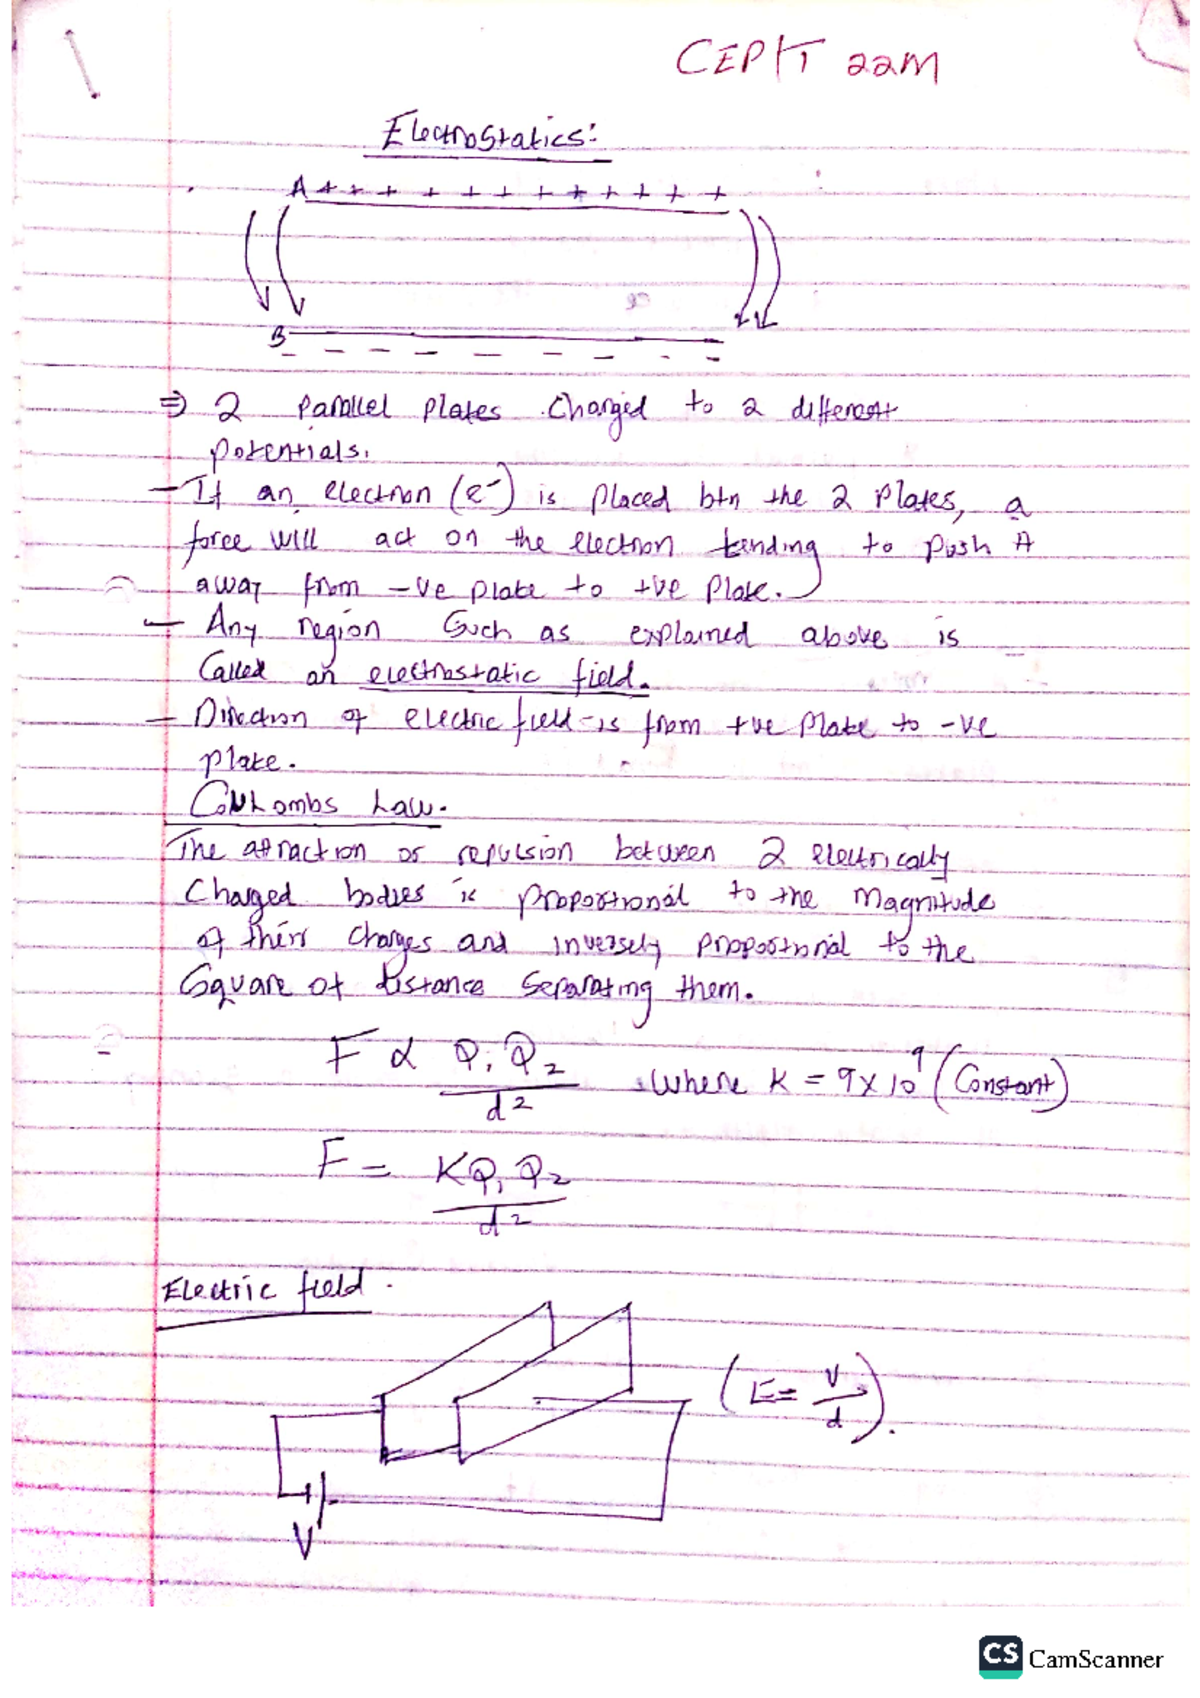 CEP/T 22M
Electrostatics:
A + + + + + + + + + + + +
B
- - - - - - - - -
⇒ 2 Parallel Plates Charged to 2 different
potentials.
- If an electron (e⁻) is placed btn the 2 Plates, a
force will act on the electron tending to push A
away from -ve plate to +ve plate.
- Any region Such as explained above is
Called an electrostatic field.
- Direction of electric field is from +ve Plate to -ve
plate.
Coulombs Law.
The attraction or repulsion between 2 electrically
Charged bodies is proportional to the Magnitude
of thirs charges and inversely proportional to the
Square of distance Separating them.
F α Q₁Q₂/d² Where K = 9x10⁹ (Constant)
F = KQ₁Q₂/d²
Electric field.
(E = V/d).
V
CS CamScanner